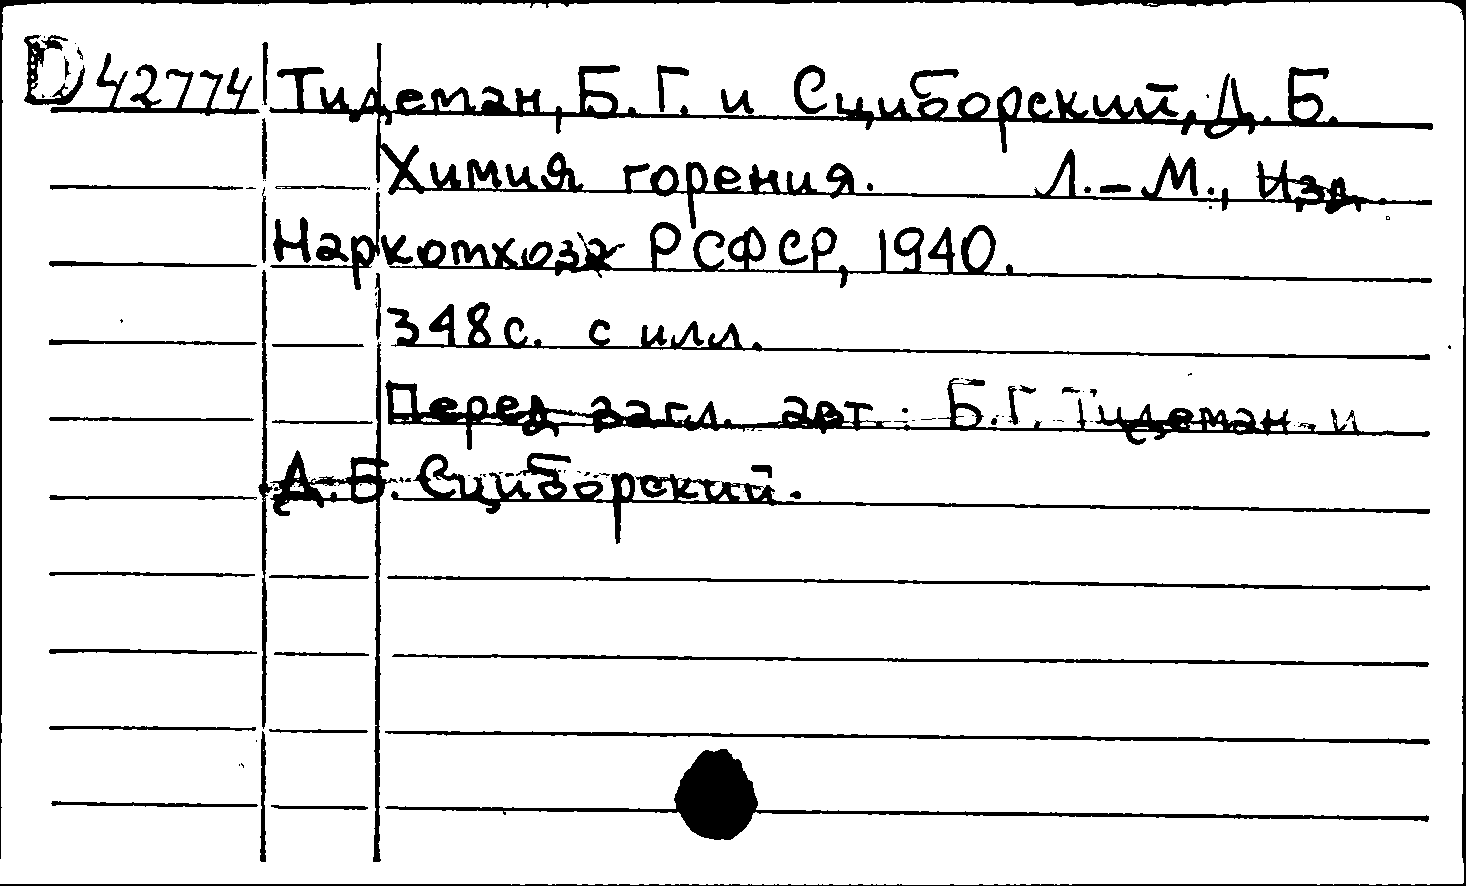 D 42774 Тидеман, Б. Г. и Сциборский, Д. Б.
Химия горения. Л.-М., Изд.
Наркомхоза РСФСР, 1940.
348 с. с илл.
Перед загл. авт.: Б.Г. Тидеман и
Д.Б. Сциборский.